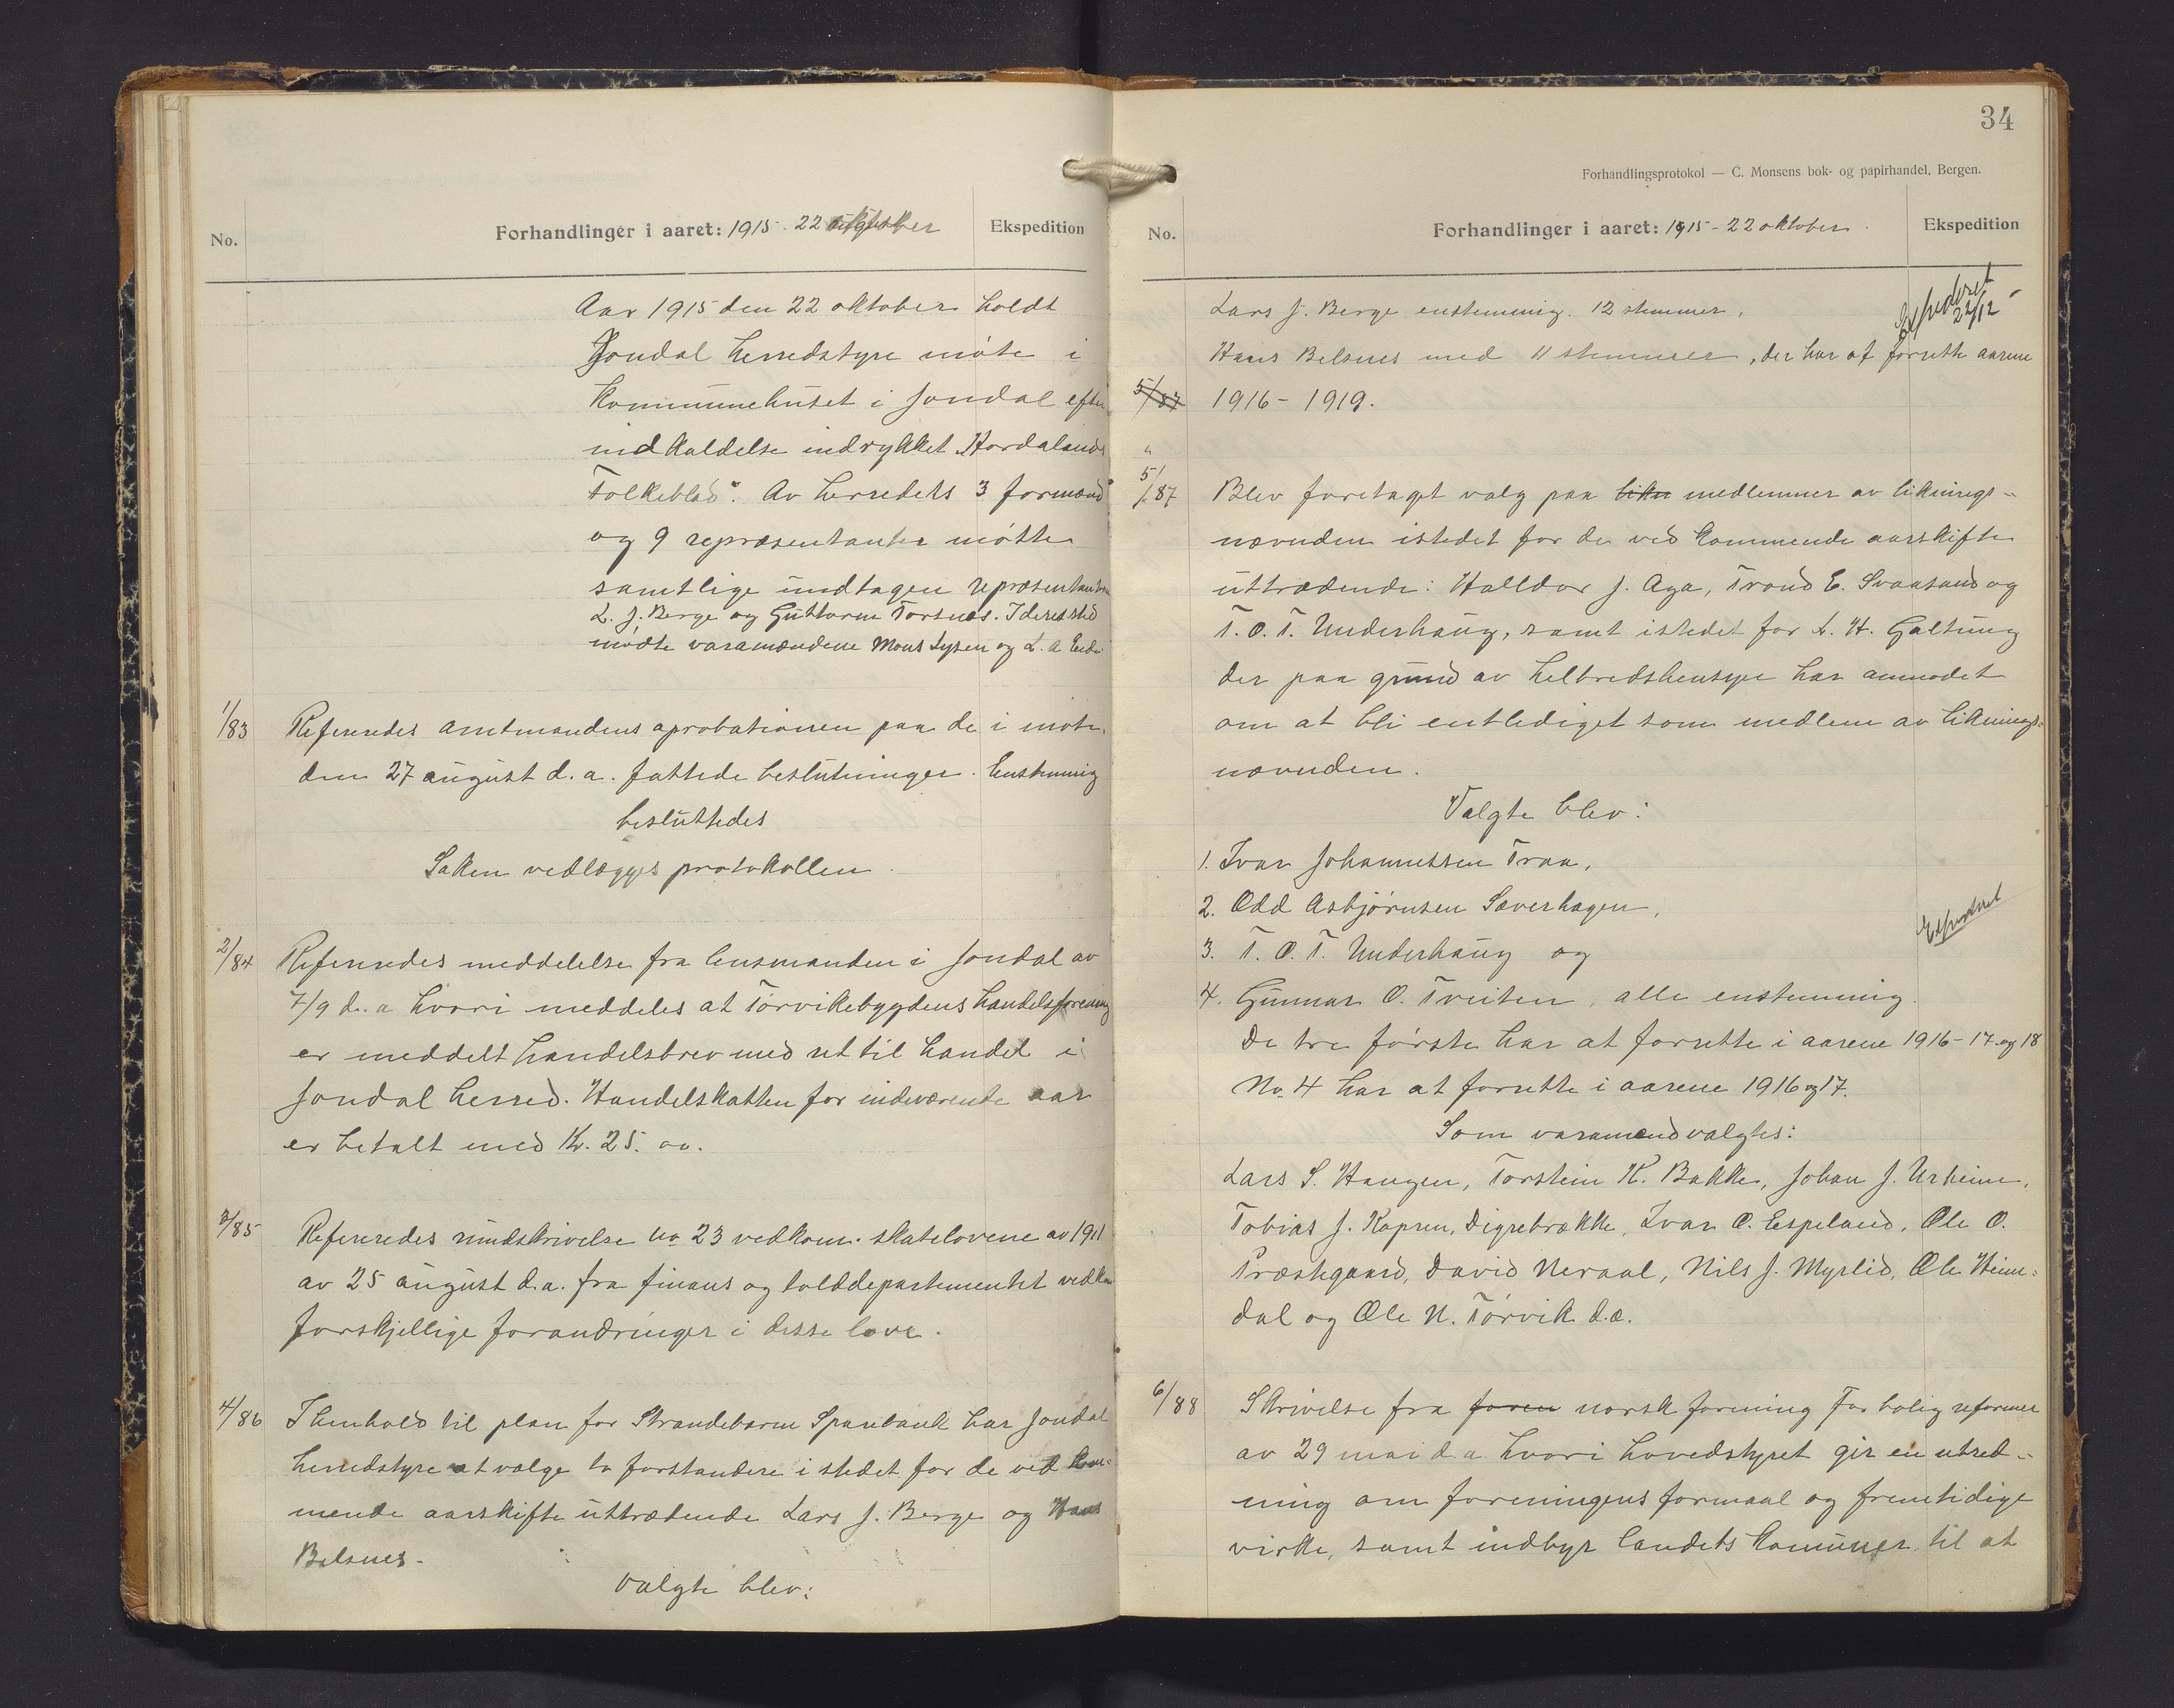 No. Forhandlinger i aaret: 1915 - 22 oktober Ekspedition
Aar 1915 den 22 oktober holdt
Jondal herredstyre møte i
kommunehuset i Jondal efter
indkaldelse indrykket „Hordalands
Folkeblad". Av herredets 3 formænd
og 9 repræsentanter møtte
samtlige undtagen repræsentanterne
L. J. Berge og Guttorm Torsnes. I deres sted
mødte varamændene Mons Lysen og L. A. Eide
1/83 Refereredes amtmandens aprobationen paa de i møte
den 27 august d. a. fattede beslutninger. Enstemmig
besluttedes
Saken vedlægges protokollen.
2/84 Refereredes meddelelse fra lensmanden i Jondal av
7/9 d. a. hvori meddeles at Tørvikebygdens handelsforening
er meddelt handelsbrev med ret til handel i
Jondal herred. Handelskatten for indeværende aar
er betalt med Kr. 25. oo.
3/85 Refereredes rundskrivelse no 23 vedkom. skatelovene av 1911
av 25 august d.a. fra finans og tolddepartementet vedkom
forskjellige forandringer i disse love.
4/86 I henhold til plan for Strandebarm Sparebank har Jondal
herredstyre at vælge to forstandere i stedet for de ved kom-
mende aarskifte uttrædende Lars J. Berge og Hans
Belsnes.
Valgte blev:
34
Forhandlingsprotokol — C. Monsens bok- og papirhandel, Bergen.
No. Forhandlinger i aaret: 1915 - 22 oktober. Ekspedition
Lars J. Berge enstemmig. 12 stemmer. Expederet 22/12
Hans Belsnes med 11 stemmer, der har at forrette aarene
5/87 1916 - 1919.
"
5/87 Blev foretaget valg paa likn medlemmer av liknings-
nævnden istedet for de ved kommende aarskifte
uttrædende: Halldor J. Aga, Trond E. Svaasand og
T. O. T. Underhaug, samt istedet for L. H. Galtung
der paa grund av helbredshensyn har anmodet
om at bli entlediget som medlem av liknings-
nævnden.
Valgte blev:
1. Ivar Johannessen Traa,
2. Odd Asbjørnsen Sæverhagen,
Expederet
3. T. O. T. Underhaug og
4. Gunnar O. Tveiten, alle enstemmig.
De tre første har at forrette i aarene 1916 - 17 og 18
No. 4 har at forrette i aarene 1916 og 17.
Som varamænd valgtes:
Lars S. Haugen, Torstein K. Bakke, Johan J. Urheim,
Tobias J. Kapsen, Digrebrække, Ivar O. Espeland, Ole O.
Præstegaard, David Neraal, Nils J. Myrlid, Ole Heim-
dal og Ole N. Tørvik d.æ.
6/88 Skrivelse fra foren norsk forening for boligreformer
av 29 mai d.a hvori hovedstyret gir en utred-
ning om foreningens formaal og fremtidige
virke, samt indbyr landets komuner til at